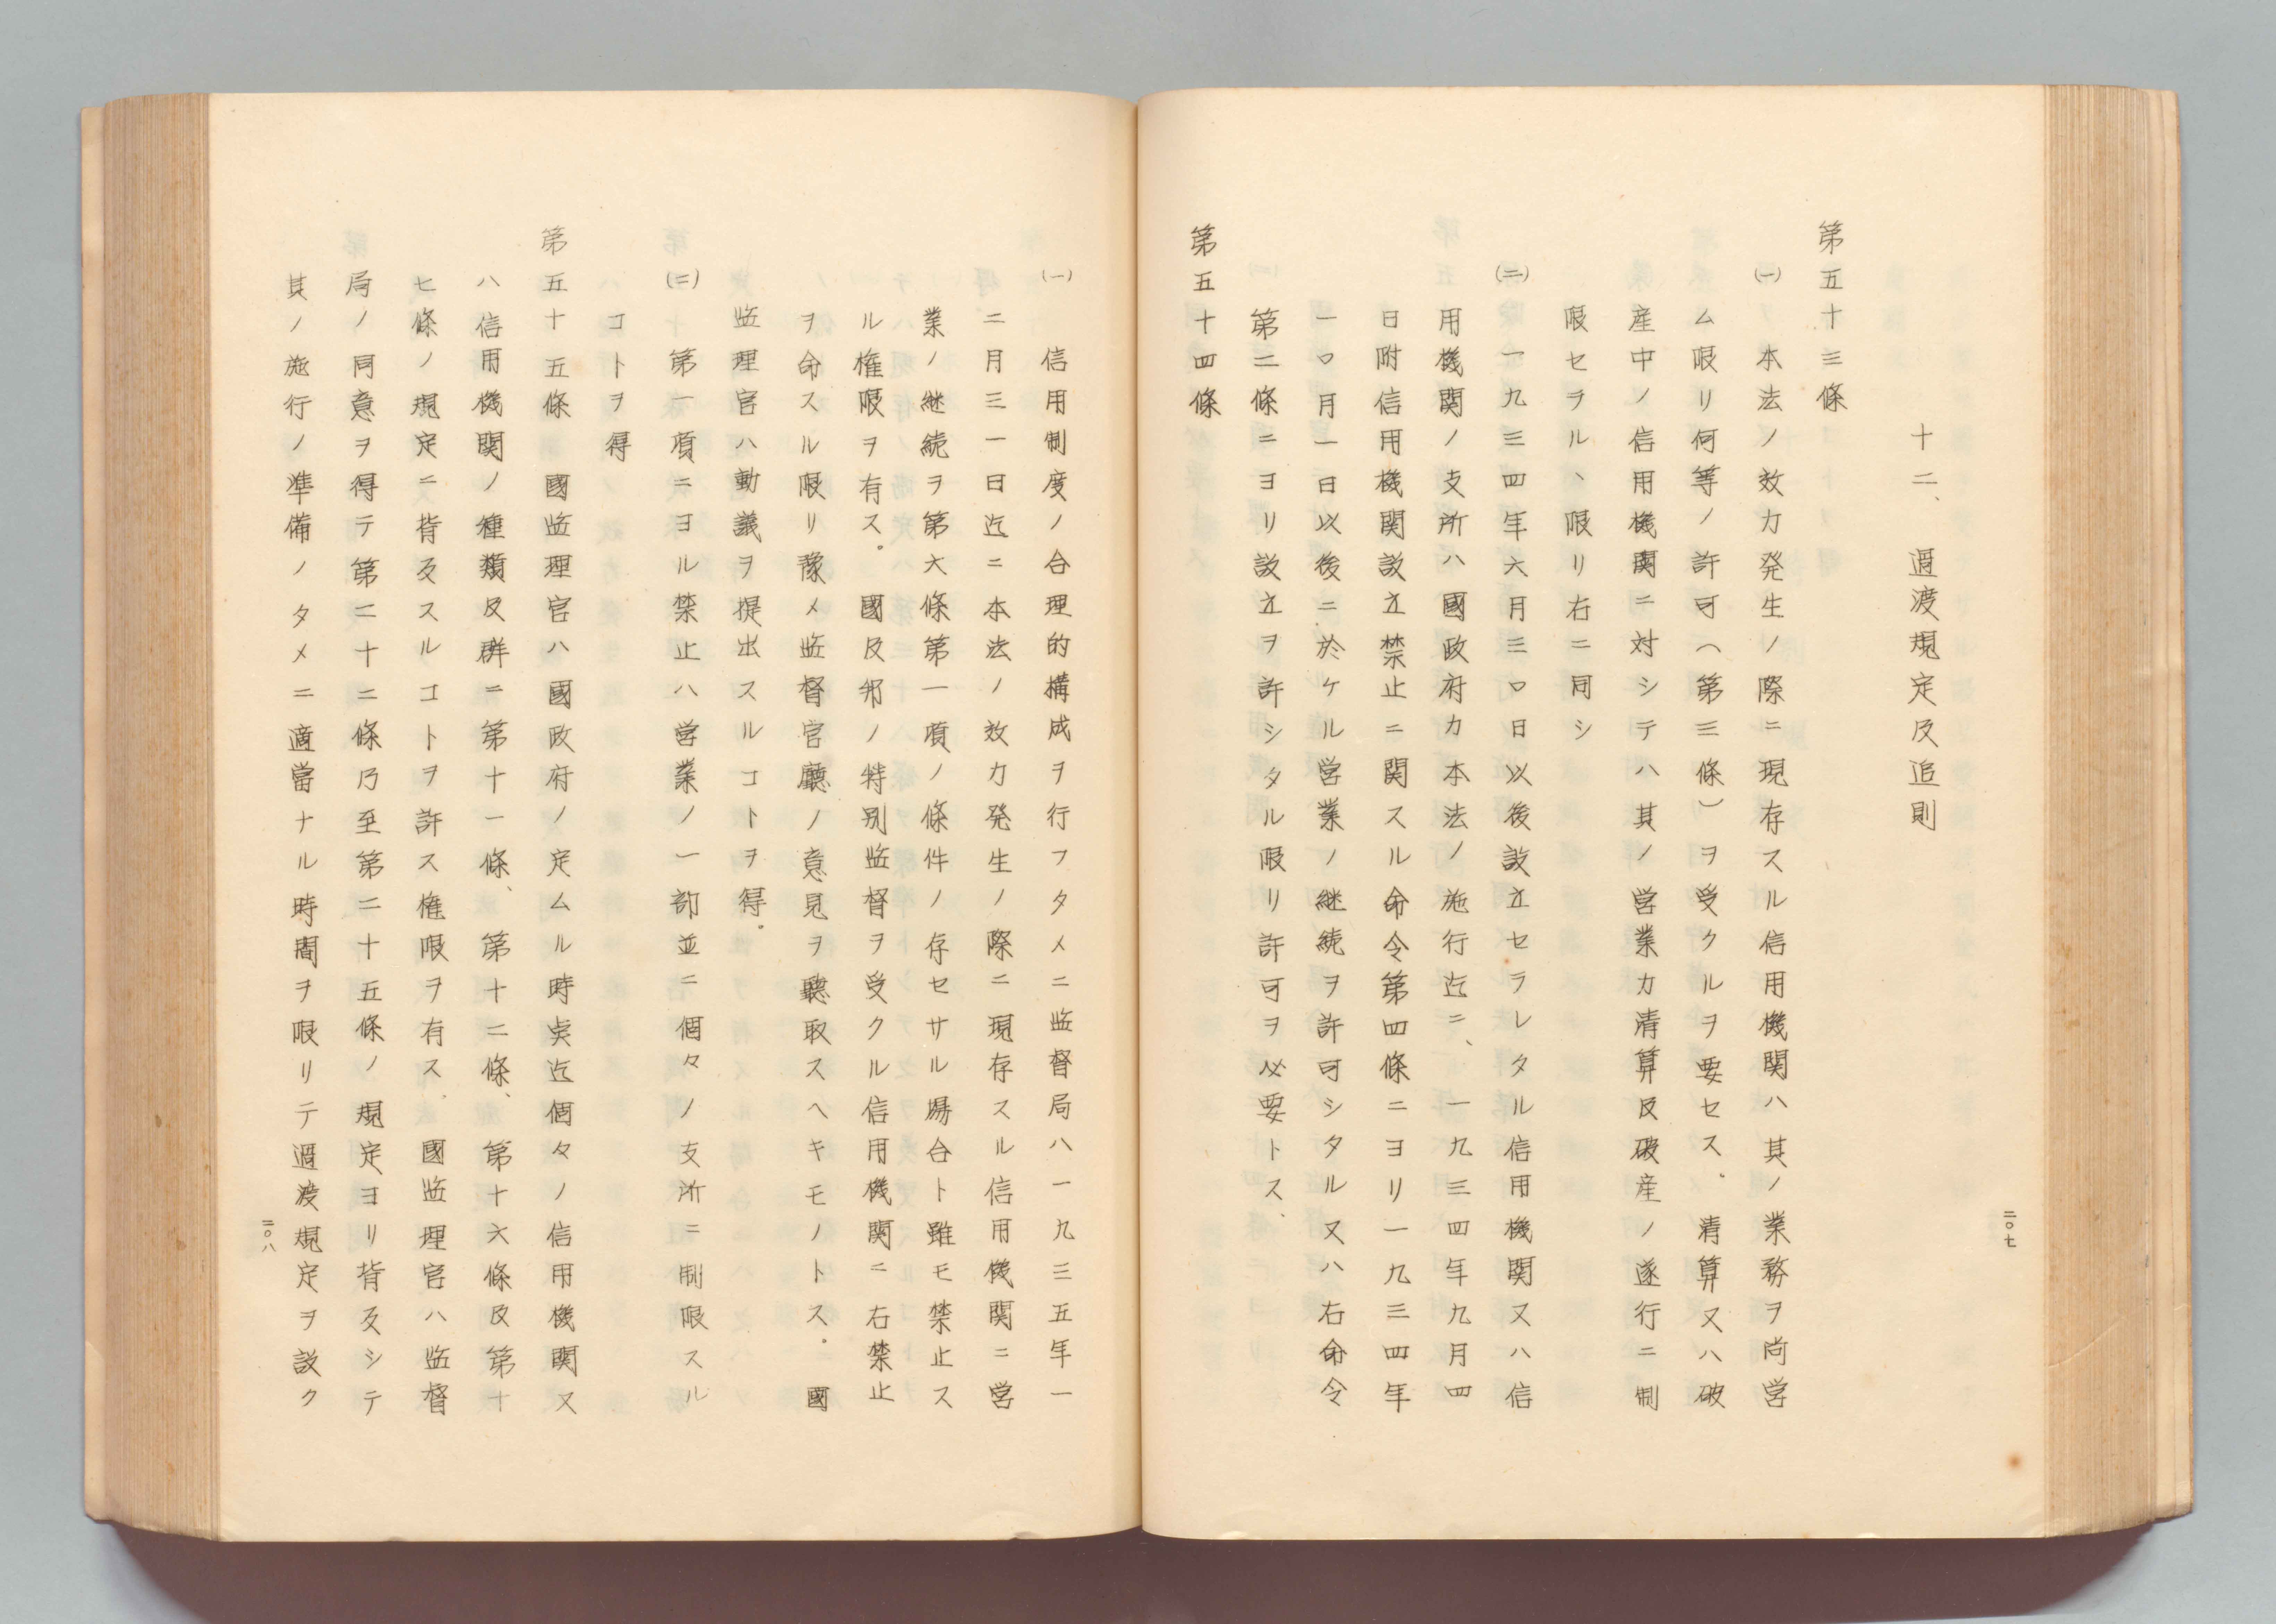 十二、過渡規定及追則
第五十三條
(一) 本法ノ效力発生ノ際ニ現存スル信用機関ハ其ノ業務ヲ尚営
ム限リ何等ノ許可(第三條)ヲ受クルヲ要セス。清算又ハ破
産中ノ信用機関ニ対シテハ其ノ営業カ清算及破産ノ遂行ニ制
限セヲルヽ限リ右ニ同シ
(二) 一九三四年六月三〇日以後設立セラレタル信用機関又ハ信
用機関ノ支所ハ國政府カ本法ノ施行迄ニ、一九三四年九月四
日附信用機関設立禁止ニ関スル命令第四條ニヨリ一九三四年
一〇月一日以後ニ於ケル営業ノ継続ヲ許可シタル又ハ右命令
第二條ニヨリ設立ヲ許シタル限リ許可ヲ必要トス、
第五十四條
二〇七
(一) 信用制度ノ合理的構成ヲ行フタメニ監督局ハ一九三五年一
二月三一日迄ニ本法ノ效力発生ノ際ニ現存スル信用機関ニ営
業ノ継続ヲ第六條第一項ノ條件ノ存セサル場合ト雖モ禁止ス
ル権限ヲ有ス。國及邦ノ特別監督ヲ受クル信用機関ニ右禁止
ヲ命スル限リ豫メ監督官廳ノ意見ヲ聽取スヘキモノトス。國
監理官ハ動議ヲ提出スルコトヲ得。
(二) 第一項ニヨル禁止ハ営業ノ一部並ニ個々ノ支所ニ制限スル
コトヲ得
第五十五條 國監理官ハ國政府ノ定ムル時実迄個々ノ信用機関又
ハ信用機関ノ種類及群ニ第十一條、第十二條、第十六條及第十
七條ノ規定ニ背反スルコトヲ許ス権限ヲ有ス、國監理官ハ監督
局ノ同意ヲ得テ第二十二條乃至第二十五條ノ規定ヨリ背反シテ
其ノ施行ノ準備ノタメニ適當ナル時間ヲ限リテ過渡規定ヲ設ク
二〇八